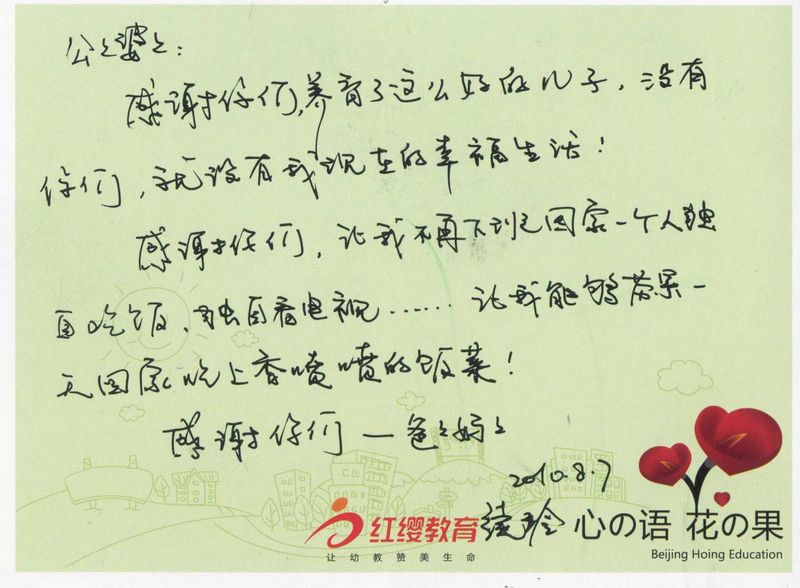 公々婆々：
感谢你们,养育了这么好的儿子，没有
你们，就没有我现在的幸福生活！
感谢你们，让我不再下班回家一个人独
自吃饭、独自看电视……让我能够劳累一
天回家吃上香喷喷的饭菜！
感谢你们—爸々妈々
2010.8.7
红缨教育
让幼教赞美生命
心の语 花の果
Beijing Hoing Education